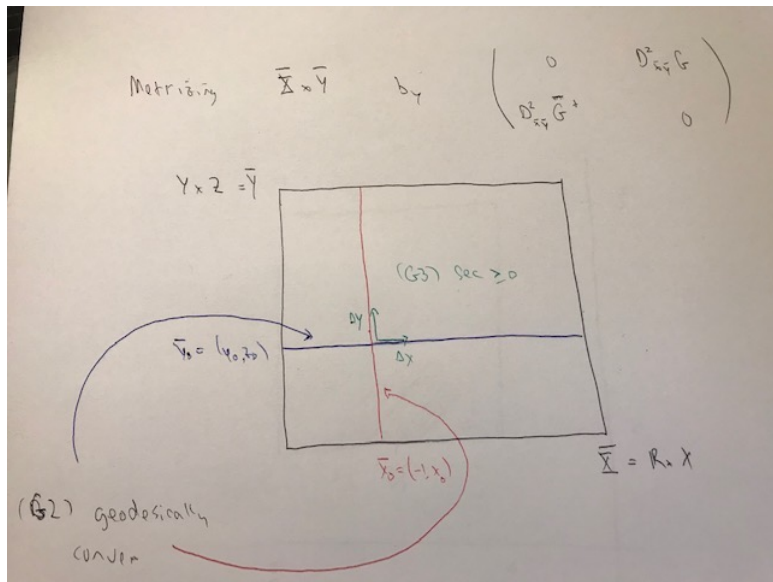 Metrizing X̅ × Y̅ by ( 0 D²x̅y̅ G
D²x̅y̅ G̅⁺ 0 )
Y × Z = Y̅
(G3) sec ≥ 0
ΔY
y̅₀ = (y₀, z₀)
ΔX
x̅₀ = (-1, x₀)
X̅ = R × X
(G2) geodesically
convex